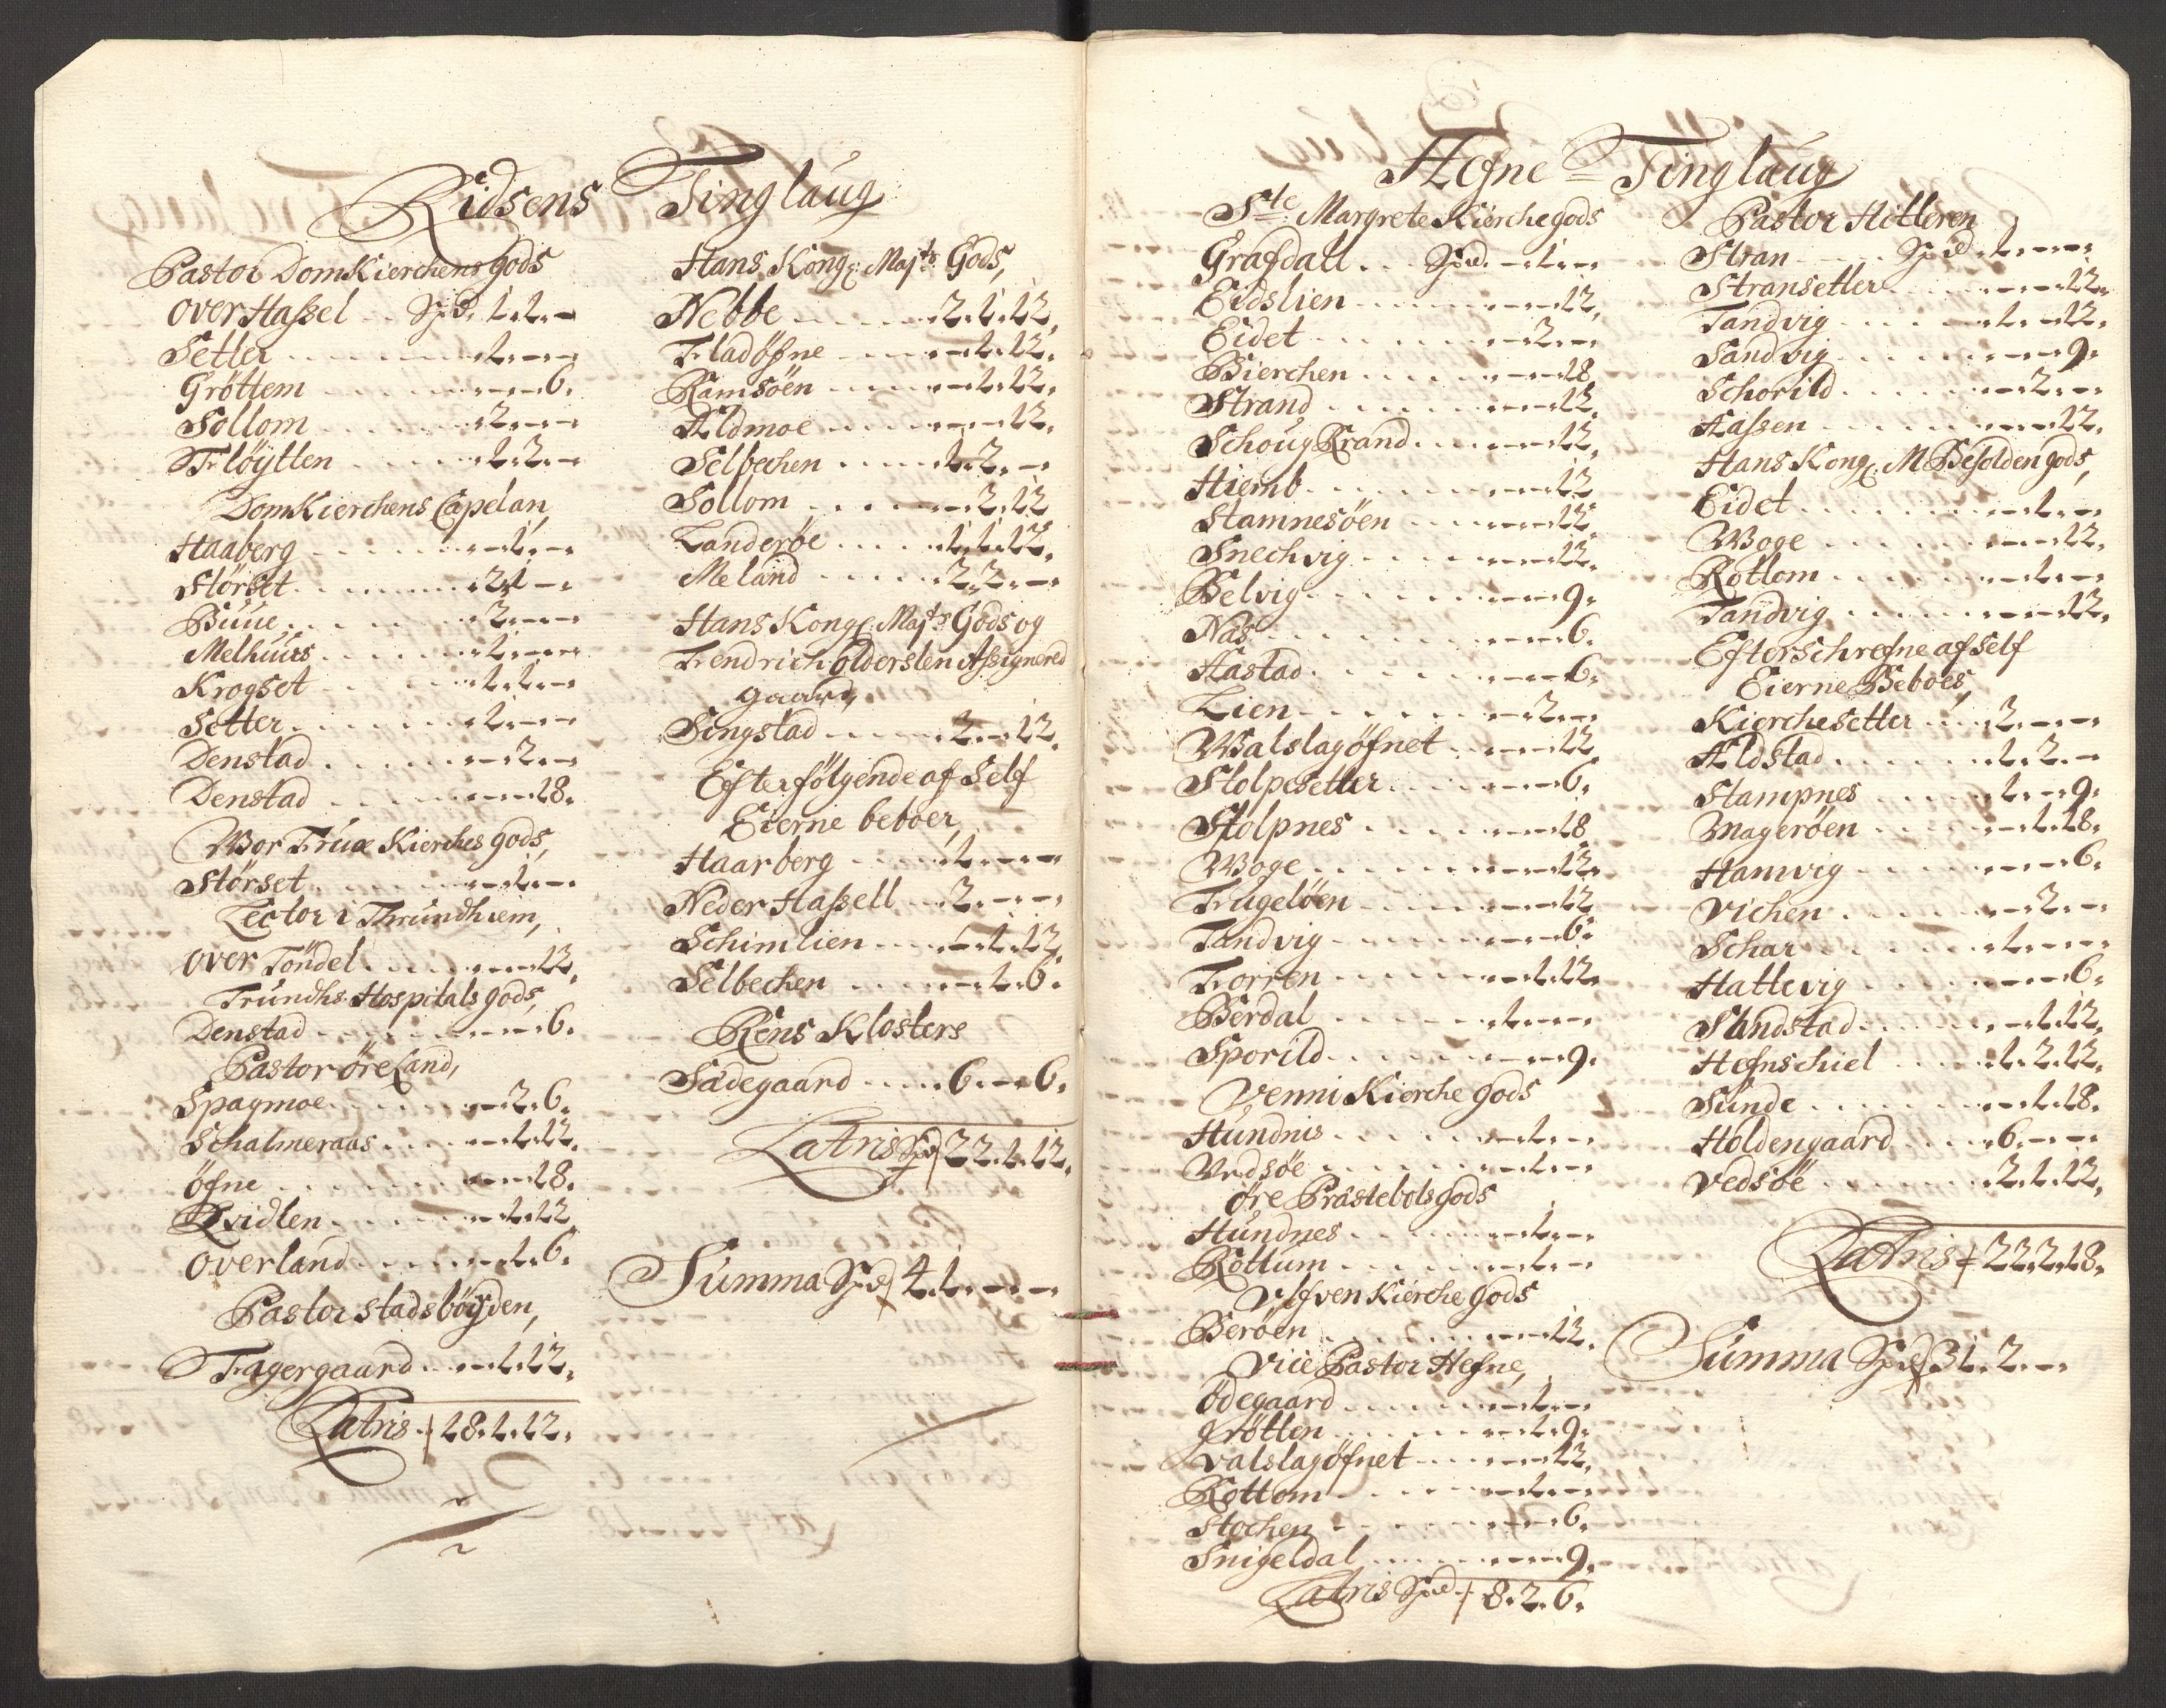 Ridsens Tinglaug
Pastor DomKierchens gods
over Haßel .. Spd. 1. 1. -
Setter ..... 1. - -
Grøttem .... - - 6.
Sollom .... 2. - -
Fløytten .... 1. 2. -
DomKierchens Capelan,
Haaberg .... - 1. -
Størset .... 2. 1 -
Buue .... 2. - -
Melhuus .... 1. - -
Krogset .... 1. 1. -
Setter .... 1. - -
Denstad .... - 2. -
Denstad .... - - 18.
Wor Fruæ Kierches gods,
Størset .... - 1. -
Lector i Thrundhiem,
over Tøndel .... - - 12.
Trundhs. Hospitals gods,
Denstad .... - - 6.
Pastor øreLand,
Spagmoe .... - 2. 6.
Schalmeraas .... - 1. 12.
øfne .... - - 18.
Qvidlen .... - 1. 12
overland .... - 1. 6.
Pastor Stadsbøyden,
Fagergaard .. - 1. 12.
Latris 18. 1. 12.
Hans Kongl: Majts Gods,
Nebbe .... 2. 1. 12,
Fladøfne .... - 1. 12.
Ramsøen .... - 1. 12.
Aldmoe .... - - 12.
Selbechen .... 1. 2. -
Sollom .... - 2. 12
Landerøe .... 1. 1. 12.
Meland .... 2. 2. -
Hans Kongl: Majts Gods og
Hendrich olderslen Aßignered
gaard,
Singstad .... 2. - 12.
Efterfølgende af Self
Eierne beboer,
Haarberg .... 1. - -
Neder Haßell .. 2. - -
Schimlien .... - 1. 12.
Selbechen .... - 1. 6.
Rens Klosters
Sædegaard .... 6. - 6.
Latris Spd 22. 1. 12.
Summa Spd 41. - -
Hefne = Tinglaug
Ste Margrete Kierchegods
Grafdall .. Spd. - 1. -
Eidslien .... - - 12,
Eidet .... - 2. -
Bierchen .... - - 18
Strand .... - - 12.
Schoug Krand .... - - 12.
Hiemb .... - - 12
Hamnesøen .... - - 12.
Snechvig .... - - 12.
Belvig .... - - 9.
Nas .... - - 6.
Hastad .... - - 6.
Lien .... - 2. -
Walslagøfnet .... - - 12
Stolpesetter .... - - 6.
Stolpnes .... - - 18
Woge .... - - 12.
Fugeløen .... - - 12
Tandvig .... - - 6.
Forren .... - 1. 12.
Berdal .... 1. - -
Sporild .... - - 9.
Venni Kierche gods
Hundnis .... - 1. -
Vedsøe .... - 1. -
øre Præstebols gods
Hundnes .... - 1. -
Rottum .... - 1. -
Ulfven Kierche gods
Berøen .... - - 12.
Vice Pastor Hefne,
Ødegaard .... - 1. -
Grøtten .... - 1. 9.
Valslagøfnet .... - - 12.
Rottom .... - 1. -
Stochen .... - - 6.
Snigeldal .... - - 9.
Latris Spd 8. 2. 6.
Pastor Hitteren
Stran .... Spd. 1. - -
Stransetter .... - - 12.
Tandvig .... - 1. - 12.
Sandvig .... - - 9.
Schorild .... - 2. -
Haßen .... - - 12.
Hans Kongl. M Besolden gods,
Eidet .... - 1. -
Woge .... - - 12.
Rottom .... - 1. -
Tandvig .... - - 12.
Efterschrefne af Self
Eierne Beboes,
Kierchesetter .. 2. - -
Aldstad .... 1. 2. -
Stampnes .... 1. - 9.
Magerøen .... - 1. 18.
Hamvig .... - - 6.
Vichen .... - 2. -
Schar .... 1. - -
Hattevig .... - - 6.
Sundstad .... - 1. 12.
Hefnschiel .... 1. 2. 12.
Sunde .... - 1. 18.
Holdengaard .... 6. - -
Vedsøe .... 2. 1. 12.
Latris 22. 2. 18.
Summa Spd 31. 2. -